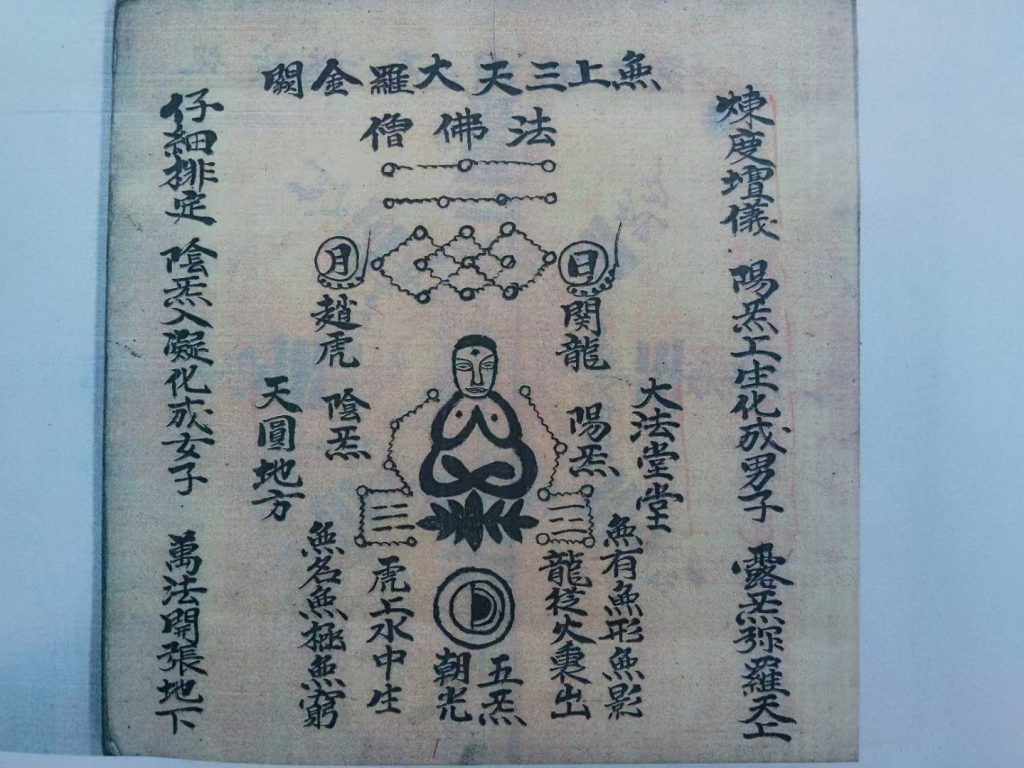 無上三天大羅金闕
法佛僧
煉度壇儀 陽炁上生化成男子 露炁弥羅天上
日
関龍
大法堂堂
陽炁
無有無形無影
龍從火裏出
五炁
朝光
月
趙虎
陰炁
天圓地方
虎上水中生
無名無極無窮
仔細排定 陰炁入凝化成女子 萬法開張地下